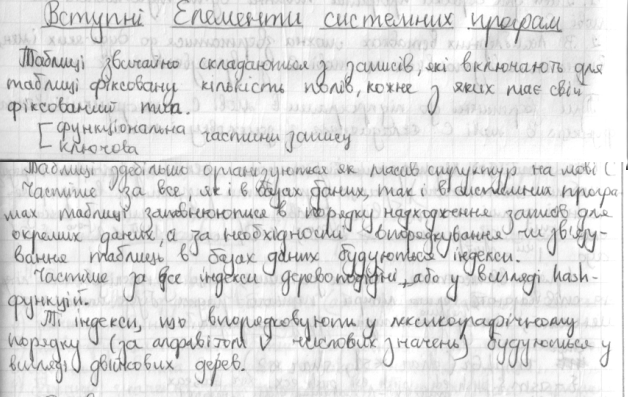 Вступні Елементи системних програм
Таблиці звичайно складаються з записів, які включають для
таблиці фіксовану кількість полів, кожне з яких має свій
фіксований тип.
[функціональна частини запису
ключова
Таблиці здебільш організуються як масив структур на мові С
Частіше за все, як і в базах даних, так і в системних програ-
мах таблиці заповнюються в порядку надходження записів для
окремих даних, а за необхідності впорядкування чи з'єдну-
вання таблиць в базах даних будуються індекси.
Частіше за все індекси деревоподібні, або у вигляді hash-
функцій.
Ті індекси, що впорядковують у лексикографічному
порядку (за алфавітом чи числових значень) будуються у
вигляді двійкових дерев.